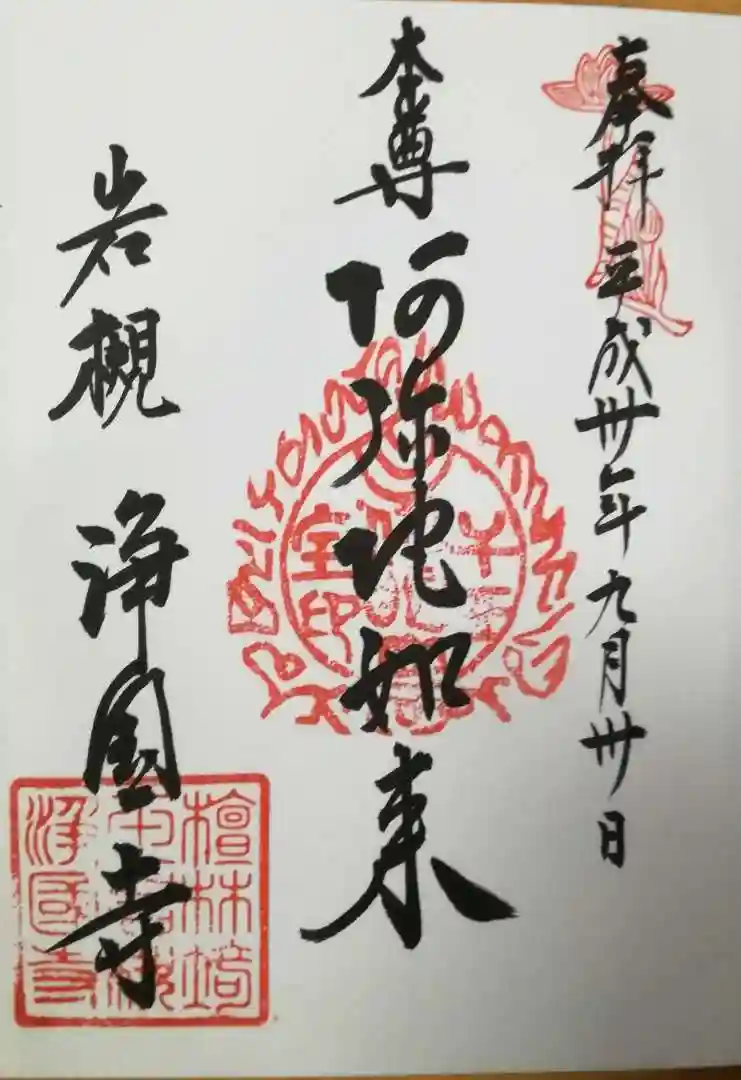 奉拝 平成卅年九月卅日
本尊 阿弥陀如来
岩槻 浄国寺
宝印
檀林埼
浄國寺